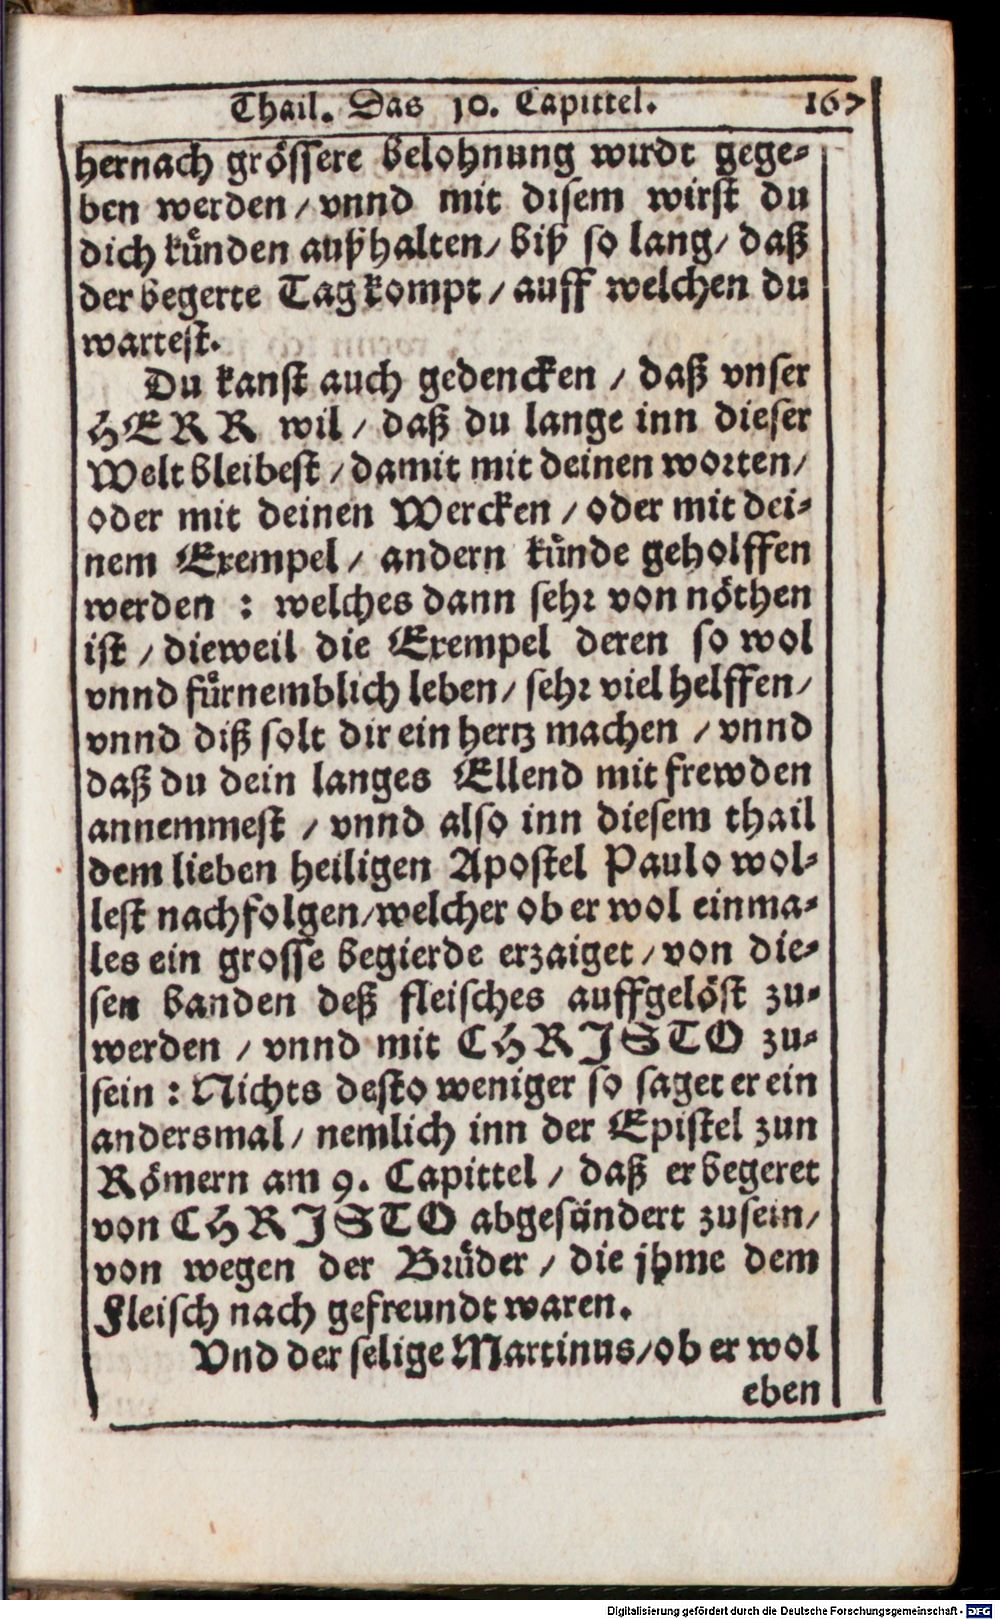 Thail. Das 10. Capittel. 167
hernach grössere belohnung wirdt gege-
ben werden / vnnd mit disem wirst du
dich künden auffhalten / biß so lang / daß
der begerte Tag kompt / auff welchen du
wartest.
Du kanst auch gedencken / daß vnser
HERR wil / daß du lange inn dieser
Welt bleibest / damit mit deinen worten /
oder mit deinen Wercken / oder mit dei-
nem Exempel / andern künde geholffen
werden : welches dann sehr von nöthen
ist / dieweil die Exempel deren so wol
vnnd fürnemblich leben / sehr viel helffen /
vnnd diß solt dir ein hertz machen / vnnd
daß du dein langes Ellend mit frewden
annemmest / vnnd also inn diesem thail
dem lieben heiligen Apostel Paulo wol-
lest nachfolgen / welcher ob er wol einma-
les ein grosse begierde erzaiget / von die-
sen banden deß fleisches auffgelöst zu-
werden / vnnd mit CHRISTO zu-
sein : Nichts desto weniger so saget er ein
andersmal / nemlich inn der Epistel zun
Römern am 9. Capittel / daß er begeret
von CHRISTO abgesündert zusein /
von wegen der Brüder / die jhme dem
Fleisch nach gefreundt waren.
Vnd der selige Martinus / ob er wol
eben
Digitalisierung gefördert durch die Deutsche Forschungsgemeinschaft - DFG